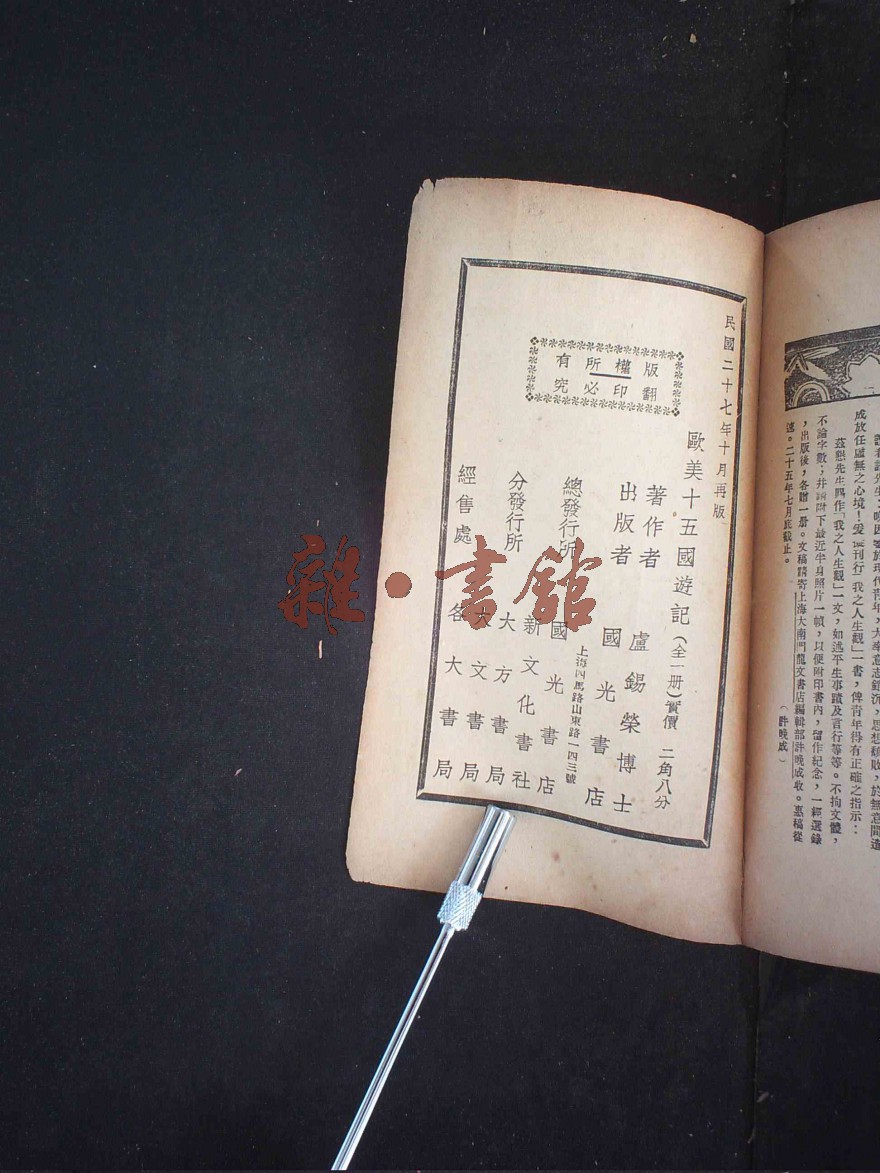 先生：晚因鑒於現代青年，大率意志銷沉，思想頹敗，於無意間造
成放任虛無之心境！爰擬刊行「我之人生觀」一書，俾青年得有正確之指示：
茲懇先生賜作「我之人生觀」一文，如述平生事蹟及言行等等。不拘文體，
不論字數；并請附下最近半身照片一幀，以便附印書內，留作紀念，一經選錄
，出版後，各贈一册。文稿請寄上海大南門龍文書店編輯部許晚成收。惠稿從
速。二十五年七月底截止。
（許晚成）
民國二十七年十月再版
版權所有
翻印必究
歐美十五國遊記（全一册）實價 二角八分
著作者 盧錫榮博士
出版者 國光書店
上海四馬路山東路一四三號
總發行所 國光書店
分發行所 新文化書社
大方書局
大文書局
經售處 各大書局
雜·書館